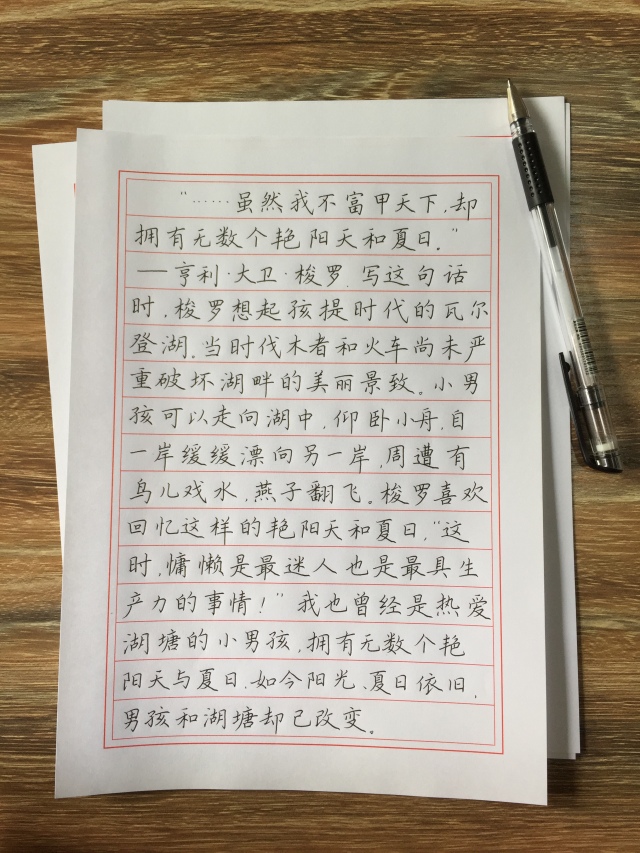 “……虽然我不富甲天下，却
拥有无数个艳阳天和夏日。”
——亨利·大卫·梭罗．写这句话
时，梭罗想起孩提时代的瓦尔
登湖。当时伐木者和火车尚未严
重破坏湖畔的美丽景致。小男
孩可以走向湖中，仰卧小舟，自
一岸缓缓漂向另一岸，周遭有
鸟儿戏水，燕子翻飞。梭罗喜欢
回忆这样的艳阳天和夏日，“这
时，慵懒是最迷人也是最具生
产力的事情！”我也曾经是热爱
湖塘的小男孩，拥有无数个艳
阳天与夏日．如今阳光、夏日依旧，
男孩和湖塘却已改变。